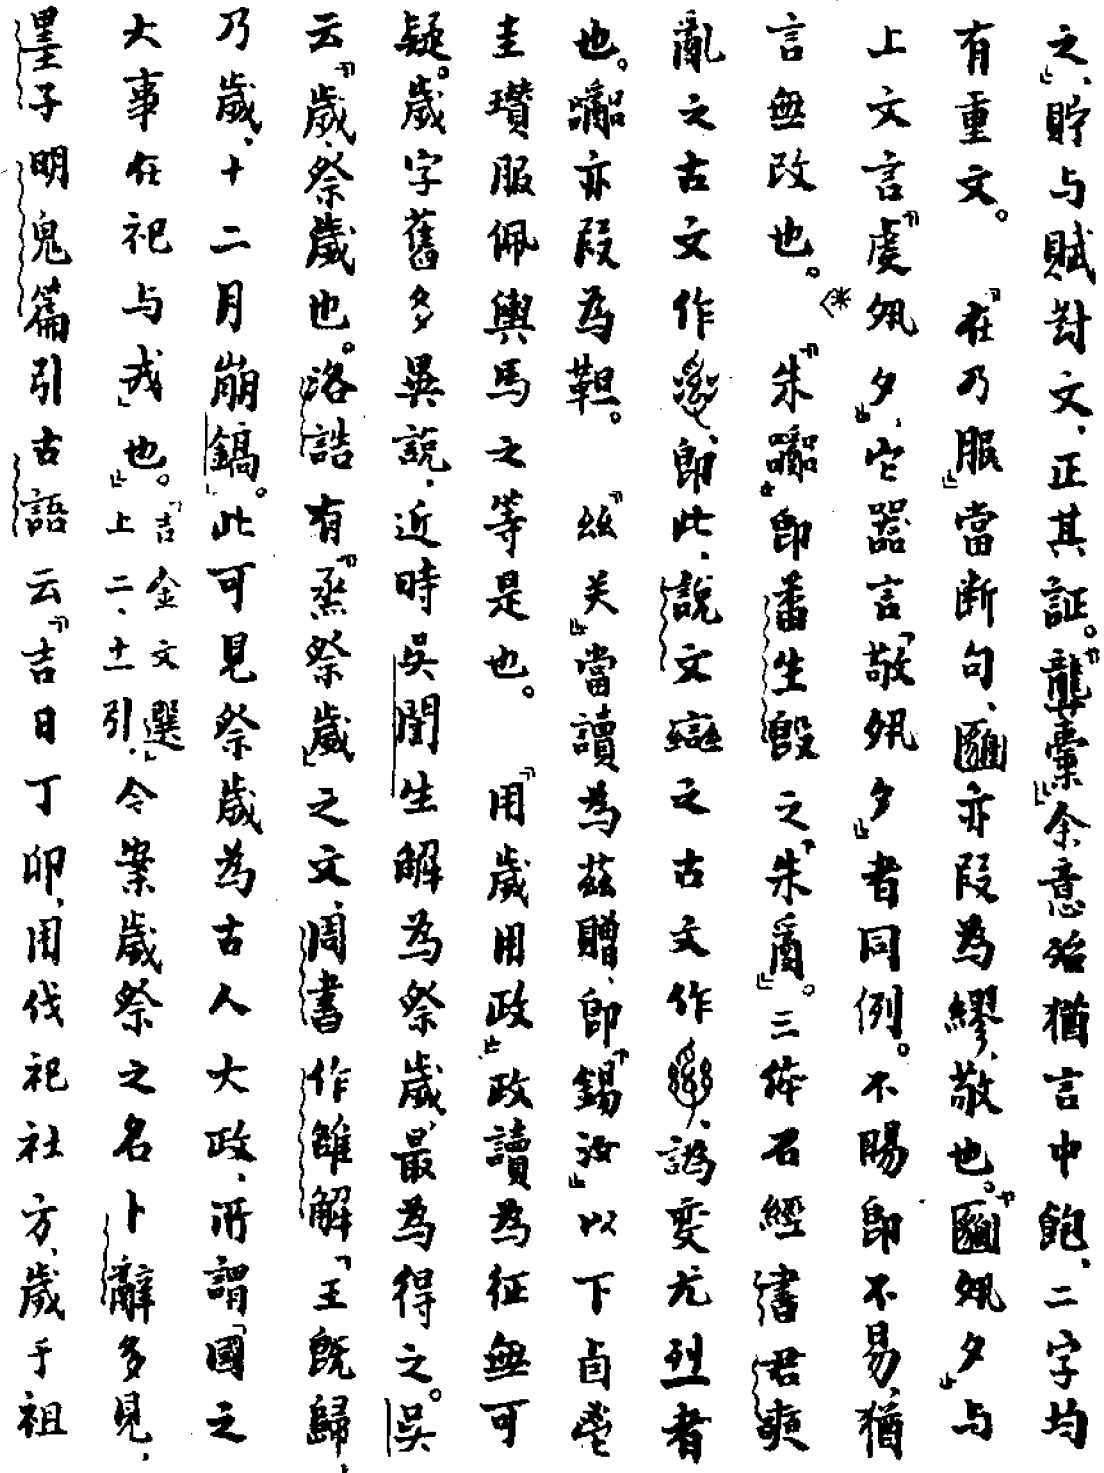 之」、貯与賦對文、正其証。『龏橐』余意殆猶言中飽、二字均
有重文。『在乃服』當断句、𩁹亦叚為繆、敬也。『𩁹夙夕』与
上文言『虔夙夕』、它器言『敬夙夕』者同例。不賜即不易、猶
言無改也。『朱𠭯』即番生𣪘之『朱𤔔』。三体石經書君奭
亂之古文作、即此、説文䜌之古文作、譌變尤烈者
也。亦叚為靼。『玆关』當讀為兹贈、即『錫汝』以下卣鬯
圭瓚服佩輿馬之等是也。『用歲用政』政讀為征無可
疑。歲字舊多異説、近時吳闓生解為祭歲、最為得之。吳
云『歲、祭歲也。洛誥有『烝祭歲』之文、周書作雒解『王既歸、
乃歲、十二月崩鎬』。此可見祭歲為古人大政、所謂『國之
大事在祀与戎』也。』『吉金文選』上二、十一引、今案歲祭之名卜辭多見、
墨子明鬼篇引古語云『吉日丁卯、用伐祀社方、歲于祖